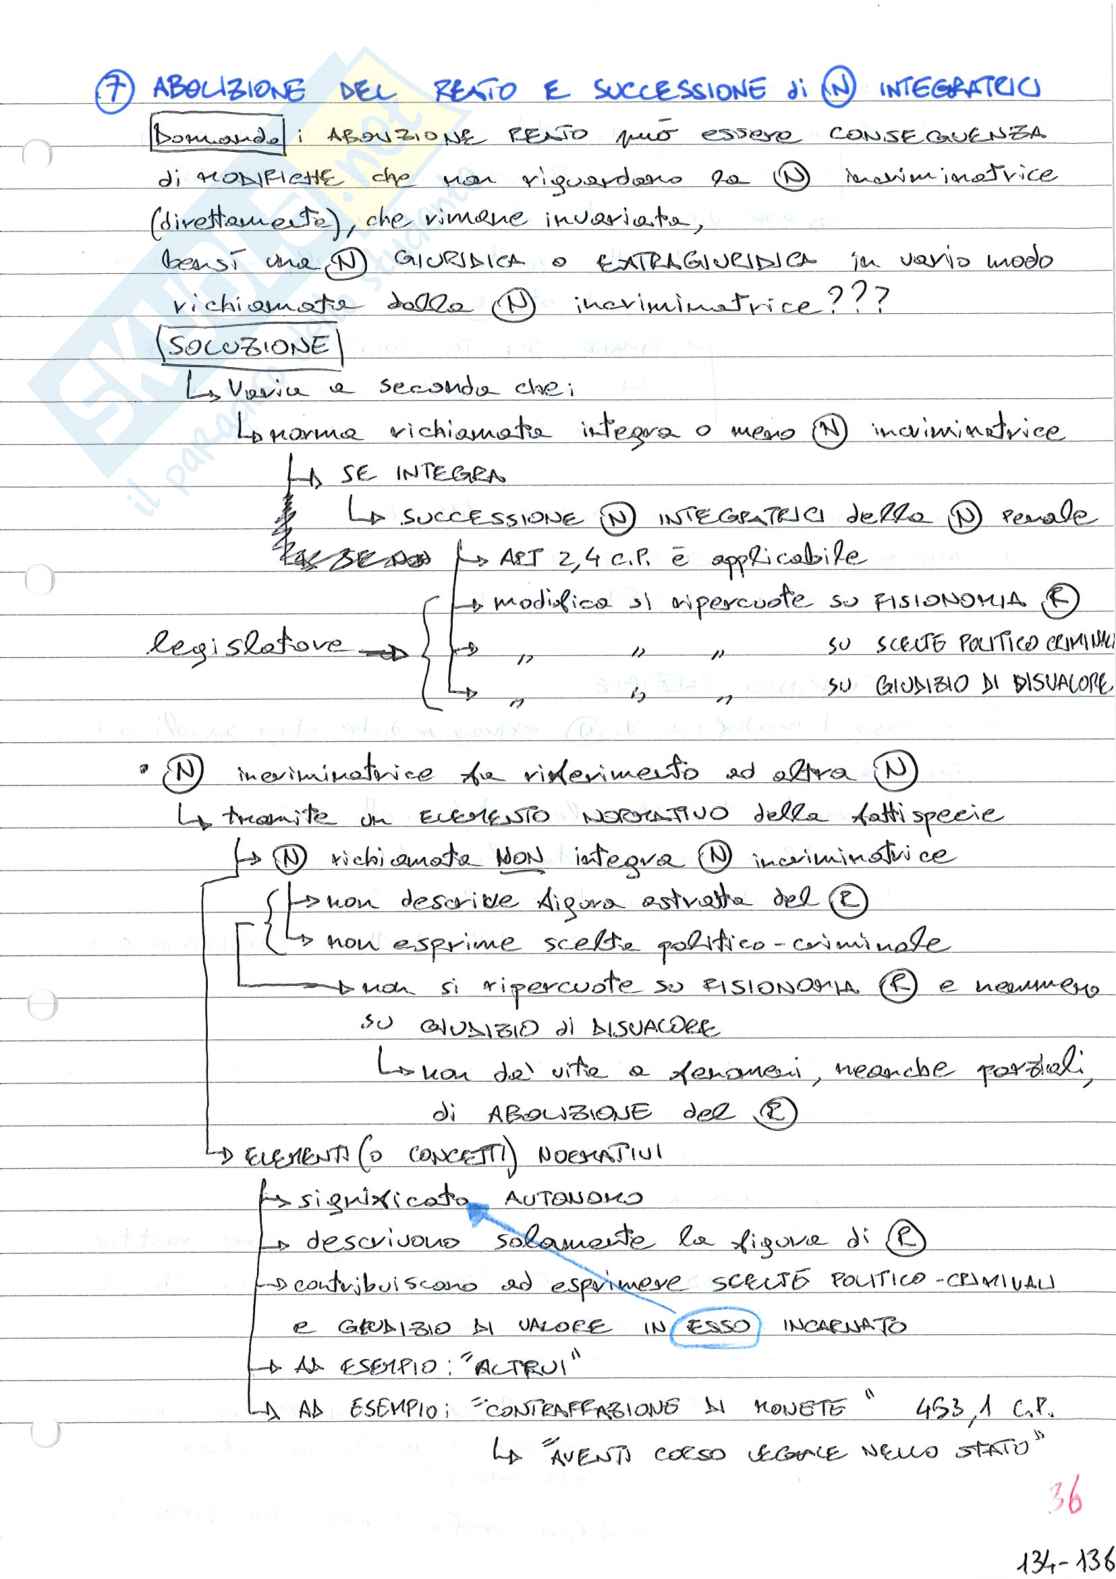 7 ABOLIZIONE DEL REATO E SUCCESSIONE di N INTEGRATRICI
Domanda: ABOLIZIONE REATO può essere CONSEGUENZA
di MODIFICHE che non riguardano la N incriminatrice
(direttamente), che rimane invariata,
bensì una N GIURIDICA o EXTRAGIURIDICA in vario modo
richiamata dalla N incriminatrice???
SOLUZIONE
↳ Varia a seconda che:
↳ norma richiamata integra o meno N incriminatrice
↳ SE INTEGRA
↳ SUCCESSIONE N INTEGRATRICI della N penale
→ ART 2,4 C.P. è applicabile
→ modifica si ripercuote su FISIONOMIA R
legislatore → → " " " SU SCELTE POLITICO CRIMINALI
→ " " " SU GIUDIZIO DI DISVALORE
• N incriminatrice fa riferimento ad altra N
↳ tramite un ELEMENTO NORMATIVO della fattispecie
↳ N richiamata NON integra N incriminatrice
→ non descrive figura astratta del R
→ non esprime scelta politico-criminale
→ non si ripercuote su FISIONOMIA R e nemmeno
su GIUDIZIO di DISVALORE
↳ non da' vita a fenomeni, neanche parziali,
di ABOLIZIONE del R
→ ELEMENTI (O CONCETTI) NORMATIVI
→ significato AUTONOMO
→ descrivono solamente la figura di R
→ contribuiscono ad esprimere SCELTE POLITICO-CRIMINALI
e GIUDIZIO DI VALORE IN ESSO INCARNATO
→ AD ESEMPIO: "ALTRUI"
→ AD ESEMPIO: "CONTRAFFAZIONE DI MONETE" 453,1 C.P.
↳ "AVENTI CORSO LEGALE NELLO STATO"
36
134-136
SKUOLA.not
il paradiso dello studente